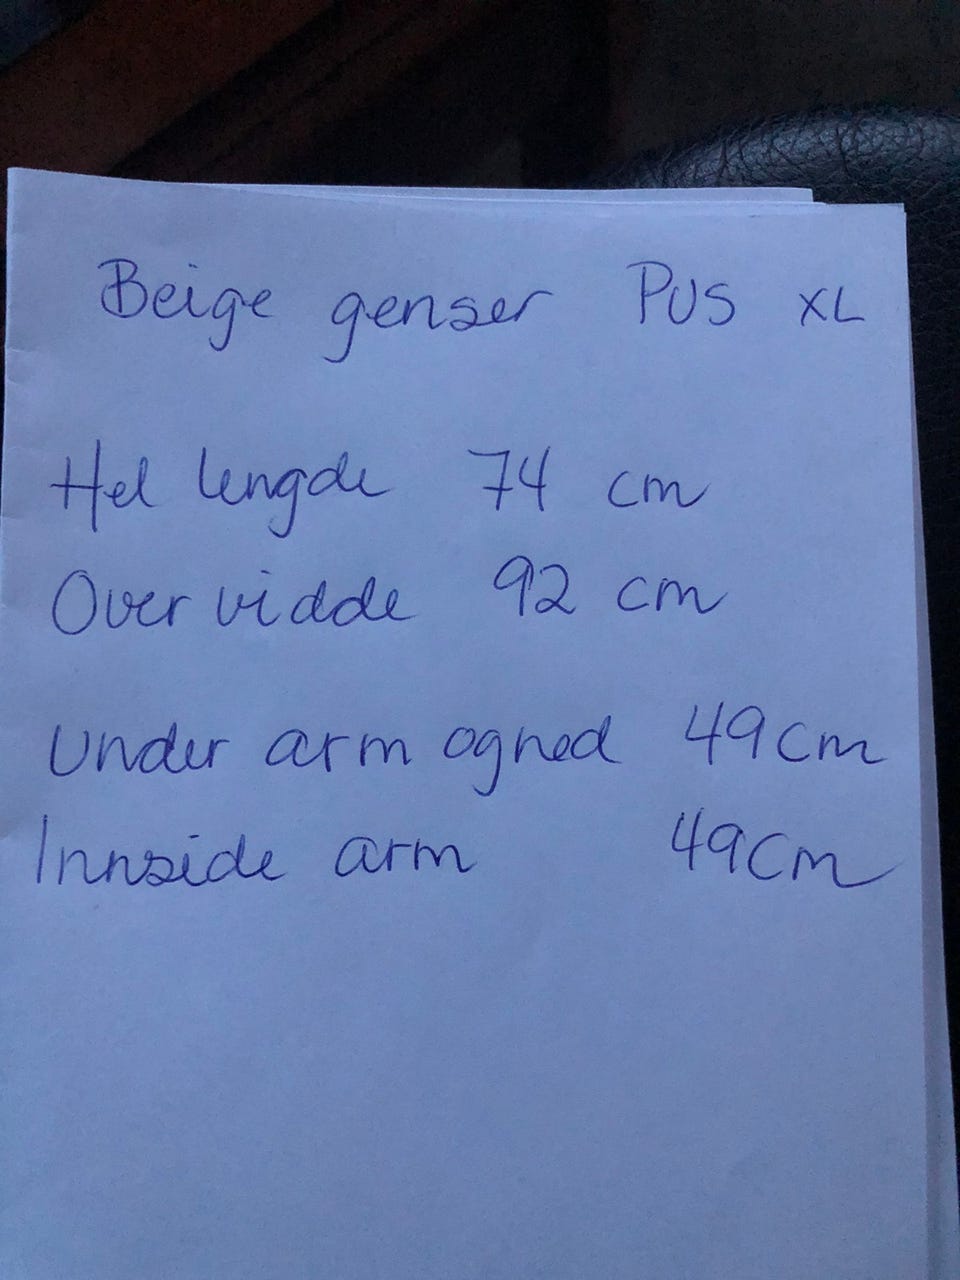 Beige genser PUS XL
Hel lengde 74 cm
Over vidde 92 cm
Under arm ogned 49 cm
Innside arm 49 cm